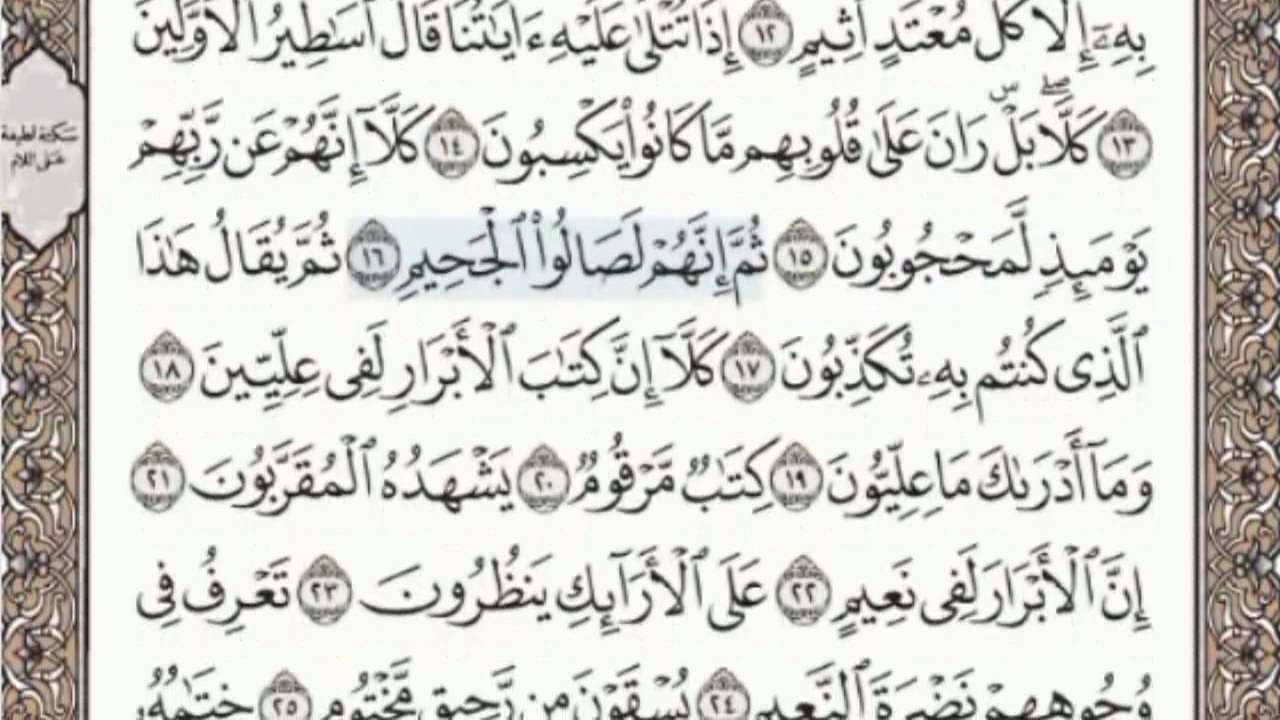 بِهِۦٓ إِلَّا كُلُّ مُعْتَدٍ أَثِيمٍ ١٢ إِذَا تُتْلَىٰ عَلَيْهِ ءَايَٰتُنَا قَالَ أَسَٰطِيرُ ٱلْأَوَّلِينَ
١٣ كَلَّا ۖ بَلْ ۜ رَانَ عَلَىٰ قُلُوبِهِم مَّا كَانُوا۟ يَكْسِبُونَ ١٤ كَلَّآ إِنَّهُمْ عَن رَّبِّهِمْ
سكتة لطيفة
على اللام
يَوْمَئِذٍ لَّمَحْجُوبُونَ ١٥ ثُمَّ إِنَّهُمْ لَصَالُوا۟ ٱلْجَحِيمِ ١٦ ثُمَّ يُقَالُ هَٰذَا
ٱلَّذِى كُنتُم بِهِۦ تُكَذِّبُونَ ١٧ كَلَّآ إِنَّ كِتَٰبَ ٱلْأَبْرَارِ لَفِى عِلِّيِّينَ ١٨
وَمَآ أَدْرَىٰكَ مَا عِلِّيُّونَ ١٩ كِتَٰبٌ مَّرْقُومٌ ٢٠ يَشْهَدُهُ ٱلْمُقَرَّبُونَ ٢١
إِنَّ ٱلْأَبْرَارَ لَفِى نَعِيمٍ ٢٢ عَلَى ٱلْأَرَآئِكِ يَنظُرُونَ ٢٣ تَعْرِفُ فِى
وُجُوهِهِمْ نَضْرَةَ ٱلنَّعِيمِ ٢٤ يُسْقَوْنَ مِن رَّحِيقٍ مَّخْتُومٍ ٢٥ خِتَٰمُهُۥ